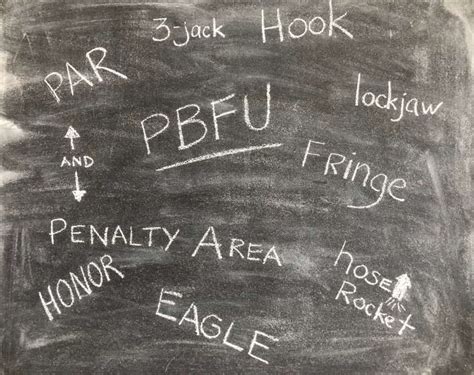 3-jack
Hook
PAR
lockjaw
PBFU
AND
Fringe
PENALTY AREA
HONOR
hosel
Rocket
EAGLE